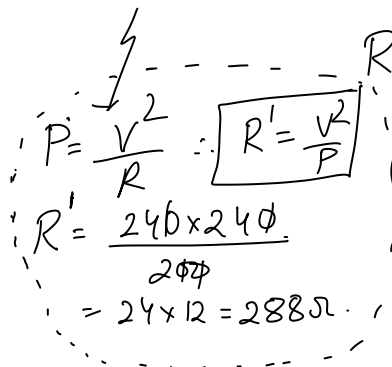 R
P = V²/R ∴ R' = V²/P
R' = 240×240/200
= 24×12 = 288Ω.